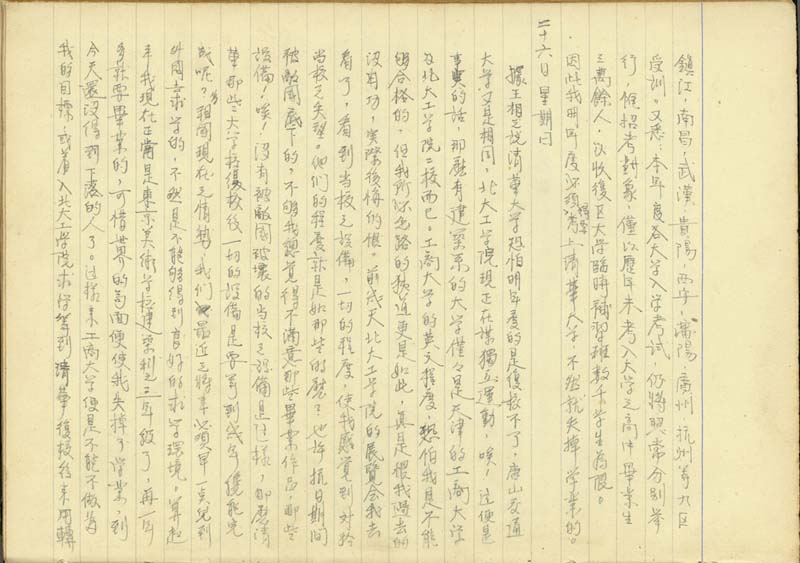 鎮江，南昌，武漢，貴陽，西安，瀋陽，廣州，杭州等九区
受訓。又悉：本年度各大学入学考試，仍將照常分別举
行，候招考對象，僅以歷年未考入大学之高中畢業生
三萬餘人，以收復区大学臨時補習班数千学生為限。
因此我明年度必須考上清華大学，不然就失掉学業的。
二十六日 星期日
據王相之説清華大学恐怕明年度的是復校不了，唐山交通
大学又是相同，北大工学院現正在謀獨立運動，唉！這便是
事実的話，那麽有建築系的大学僅々是天津的工商大学
与北大工学院二校而已。工商大学的英文程度，恐怕我是不能
够合格的，但我所必念路的，更是如此，真是恨我過去的
没用功，實際後悔的很。前幾天北大工学院的展覧会我去
看了，看到当校之設備，一切的程度，使我感覚到对於
当校之失望。他們的程度就是如那些的麽？也许抗日期間
被敵国底下的，不够我想覚得不滿意那些畢業作品，那些
設備！唉！没有被敵国破壊的当校之設備是这樣，那麽清
華那些大学校復校後一切的設備是要等到幾年纔能完
成呢？祖国現在之情勢，我們最近之將来必須早一点兒到
外国求学的，不然是不能够得到良好的求学環境，算起
来我現在正当是東京美術学校建築科之三年級了，再一年
多就要畢業的，可惜世界的局面便使我失掉了学業，到
今天還没得到下落的人了。这樣来工商大学便是不能不做為
我的目標，或着入北大工学院求学等到清華復校後来用轉